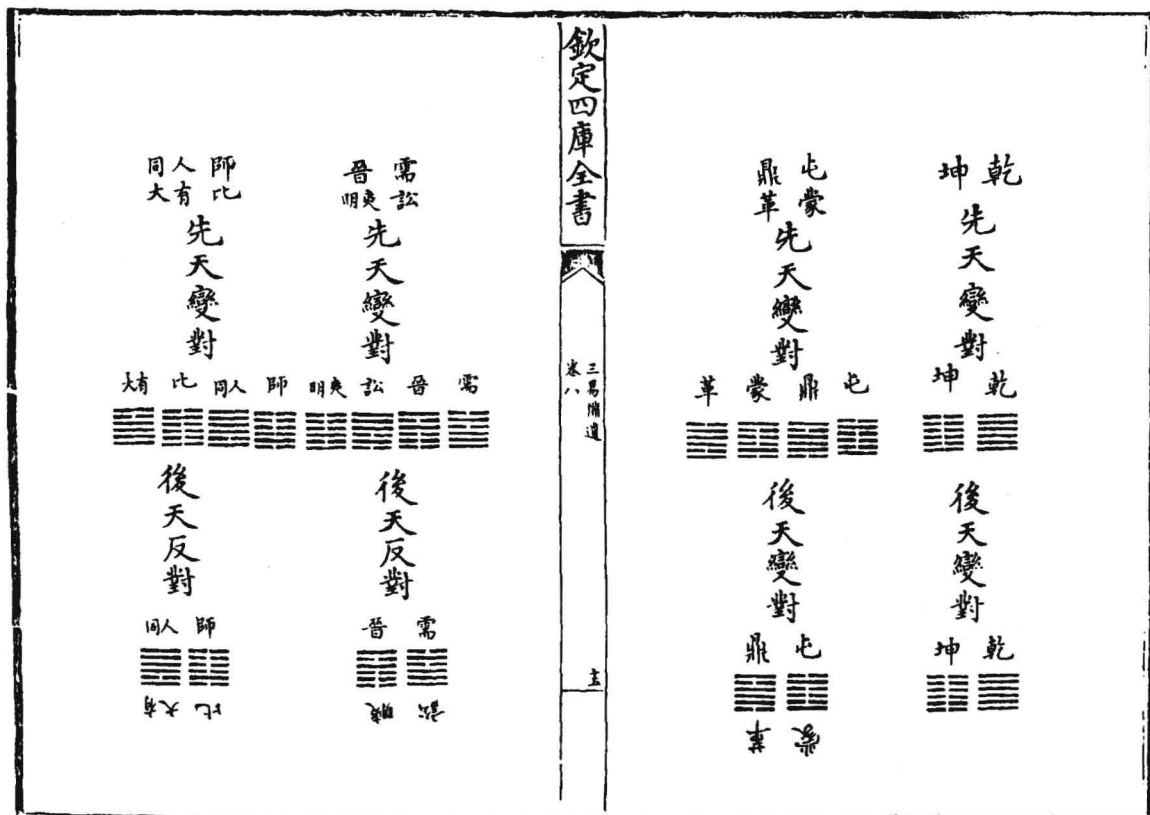 乾坤
先天變對
乾坤
後天變對
乾坤
屯鼎
蒙革
先天變對
屯鼎蒙革
後天變對
屯鼎
蒙革
欽定四庫全書
三易備遺
卷八
需晉
訟明夷
先天變對
需晉訟明夷
後天反對
需晉
訟明夷
師同人
比大有
先天變對
師同人比大有
後天反對
師同人
比大有